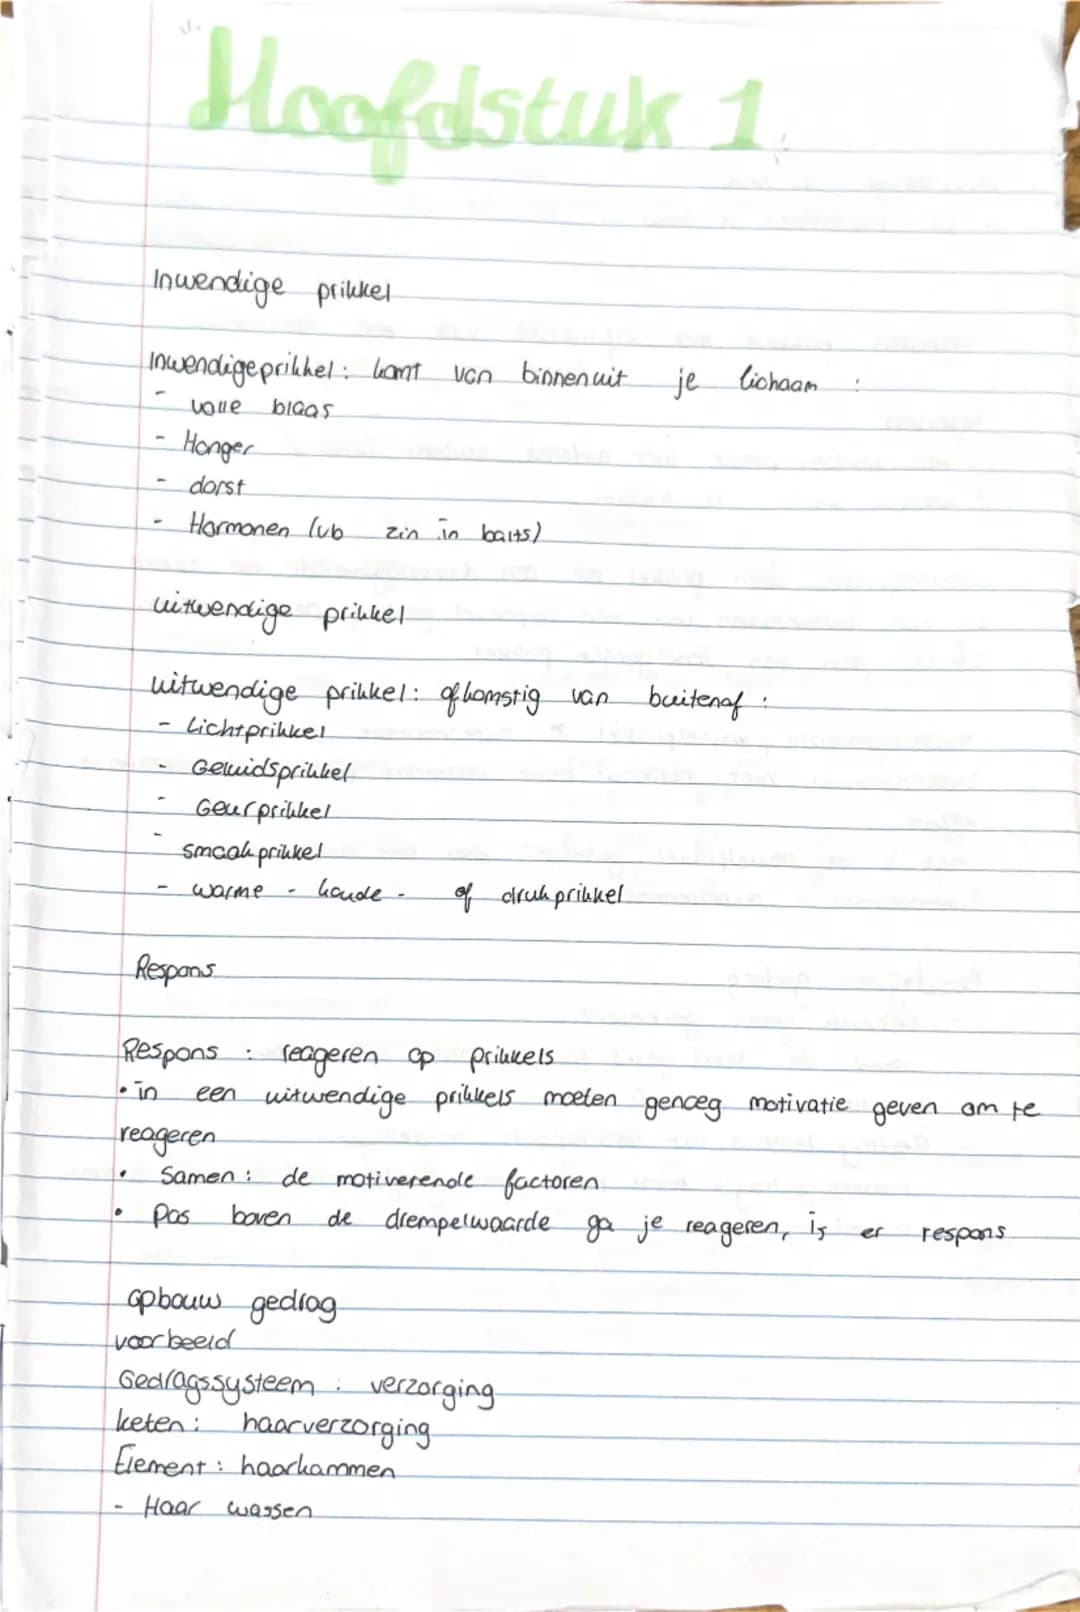 Hoofdstuk 1
Inwendige prikkel
Inwendige prikkel: komt van binnenuit je lichaam :
- volle blaas
- Honger
- dorst
- Hormonen (vb zin in baits)
uitwendige prikkel
uitwendige prikkel: afkomstig van buitenaf :
- Lichtprikkel
- Geluidsprikkel
- Geurprikkel
- smaakprikkel
- warme - koude - of drukprikkel
Respons
Respons : reageren op prikkels
• in een uitwendige prikkels moeten genoeg motivatie geven om te
reageren
• Samen : de motiverende factoren
• Pas boven de drempelwaarde ga je reageren, is er respons
opbouw gedrag
voorbeeld
Gedragssysteem : verzorging
keten : haarverzorging
Element : haarkammen
- Haar wassen